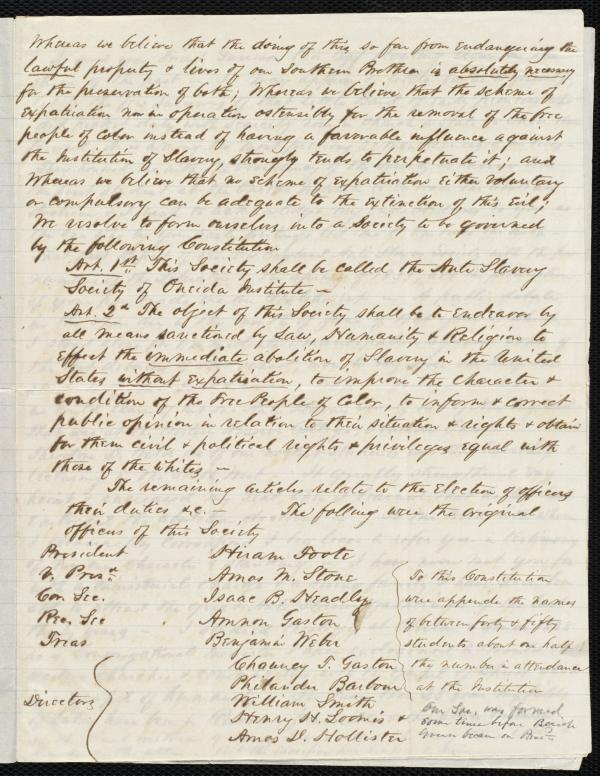 Whereas we believe that the doing of this so far from endangering the
lawful property & lives of our Southern Brethren is absolutely necessary
for the preservation of both; Whereas we believe that the scheme of
expatriation now in operation ostensibly for the removal of the free
people of Color instead of having a favorable influence against
the Institution of Slavery, strongly tends to perpetuate it; and
Whereas we believe that no scheme of expatriation either voluntary
or compulsory can be adequate to the extinction of this Evil;
We resolve to form ourselves into a Society to be governed
by the following Constitution
Art. 1st This Society shall be called the Anti Slavery
Society of Oneida Institute —
Art. 2d The object of this Society shall be to Endeavor by
all means sanctioned by Law, Humanity & Religion to
Effect the immediate abolition of Slavery in the United
States without Expatriation, to improve the Character &
condition of the Free People of Color, to inform & correct
public opinion in relation to their situation & rights & obtain
for them civil & political rights & privileges equal with
those of the whites —
The remaining articles relate to the Election of officers
their duties &c. — The folling were the original
officers of this Society
President Hiram Foote
V. Pres. Amos M. Stone
Cor. Sec. Isaac B. Headley
Rec. Sec Amnon Gaston
Treas Benjamin Weber
Directors
Chauncy T. Gaston
Philander Barbour
William Smith
Henry H. Loomis &
Amos D. Hollister
To this Constitution
were appende the names
of between forty & fifty
students about one half
the number in attendance
at the Institution
Our Soc. was formed
some time before Beriah
Green became our Pres.